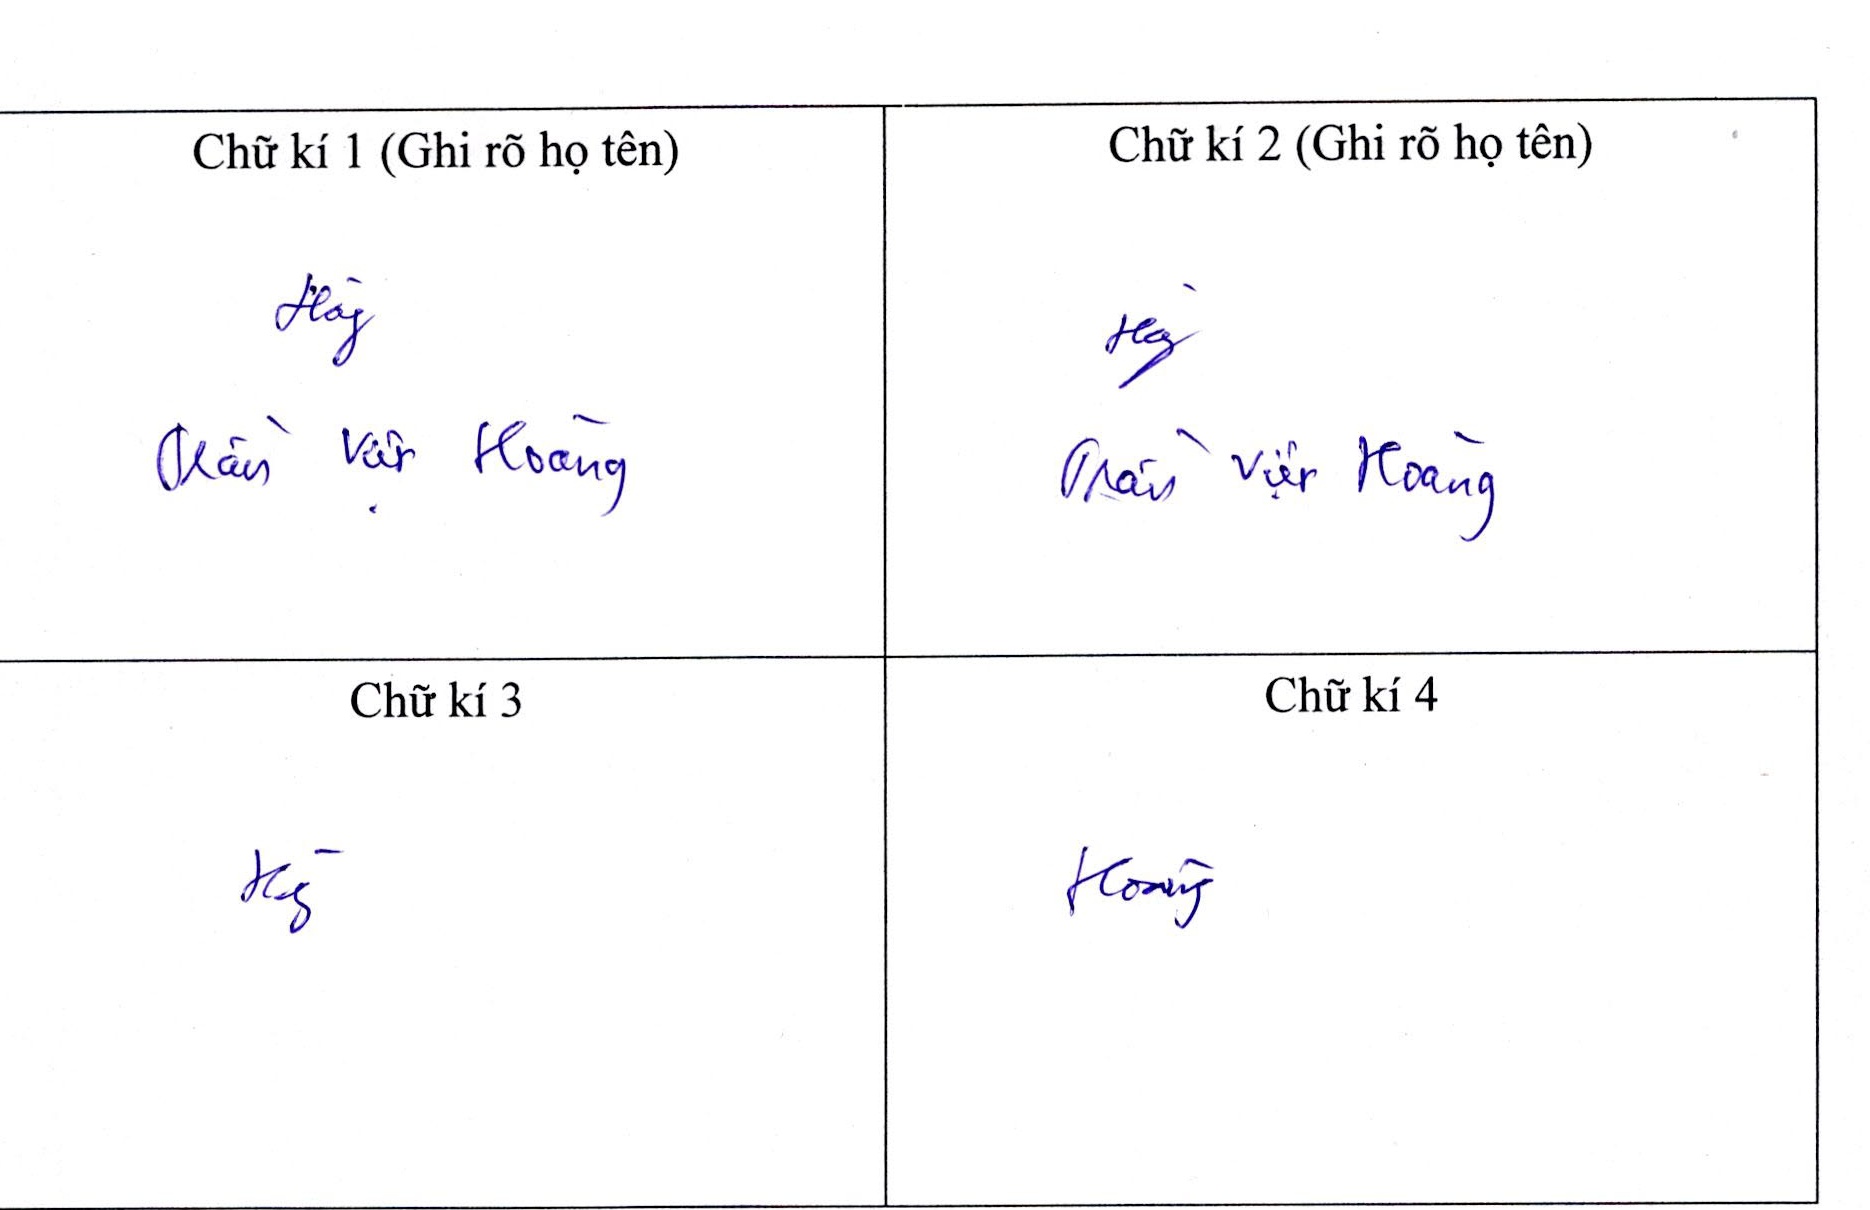 Chữ kí 1 (Ghi rõ họ tên)
Chữ kí 2 (Ghi rõ họ tên)
Trần Việt Hoàng
Trần Việt Hoàng
Chữ kí 3
Chữ kí 4
Hoàng